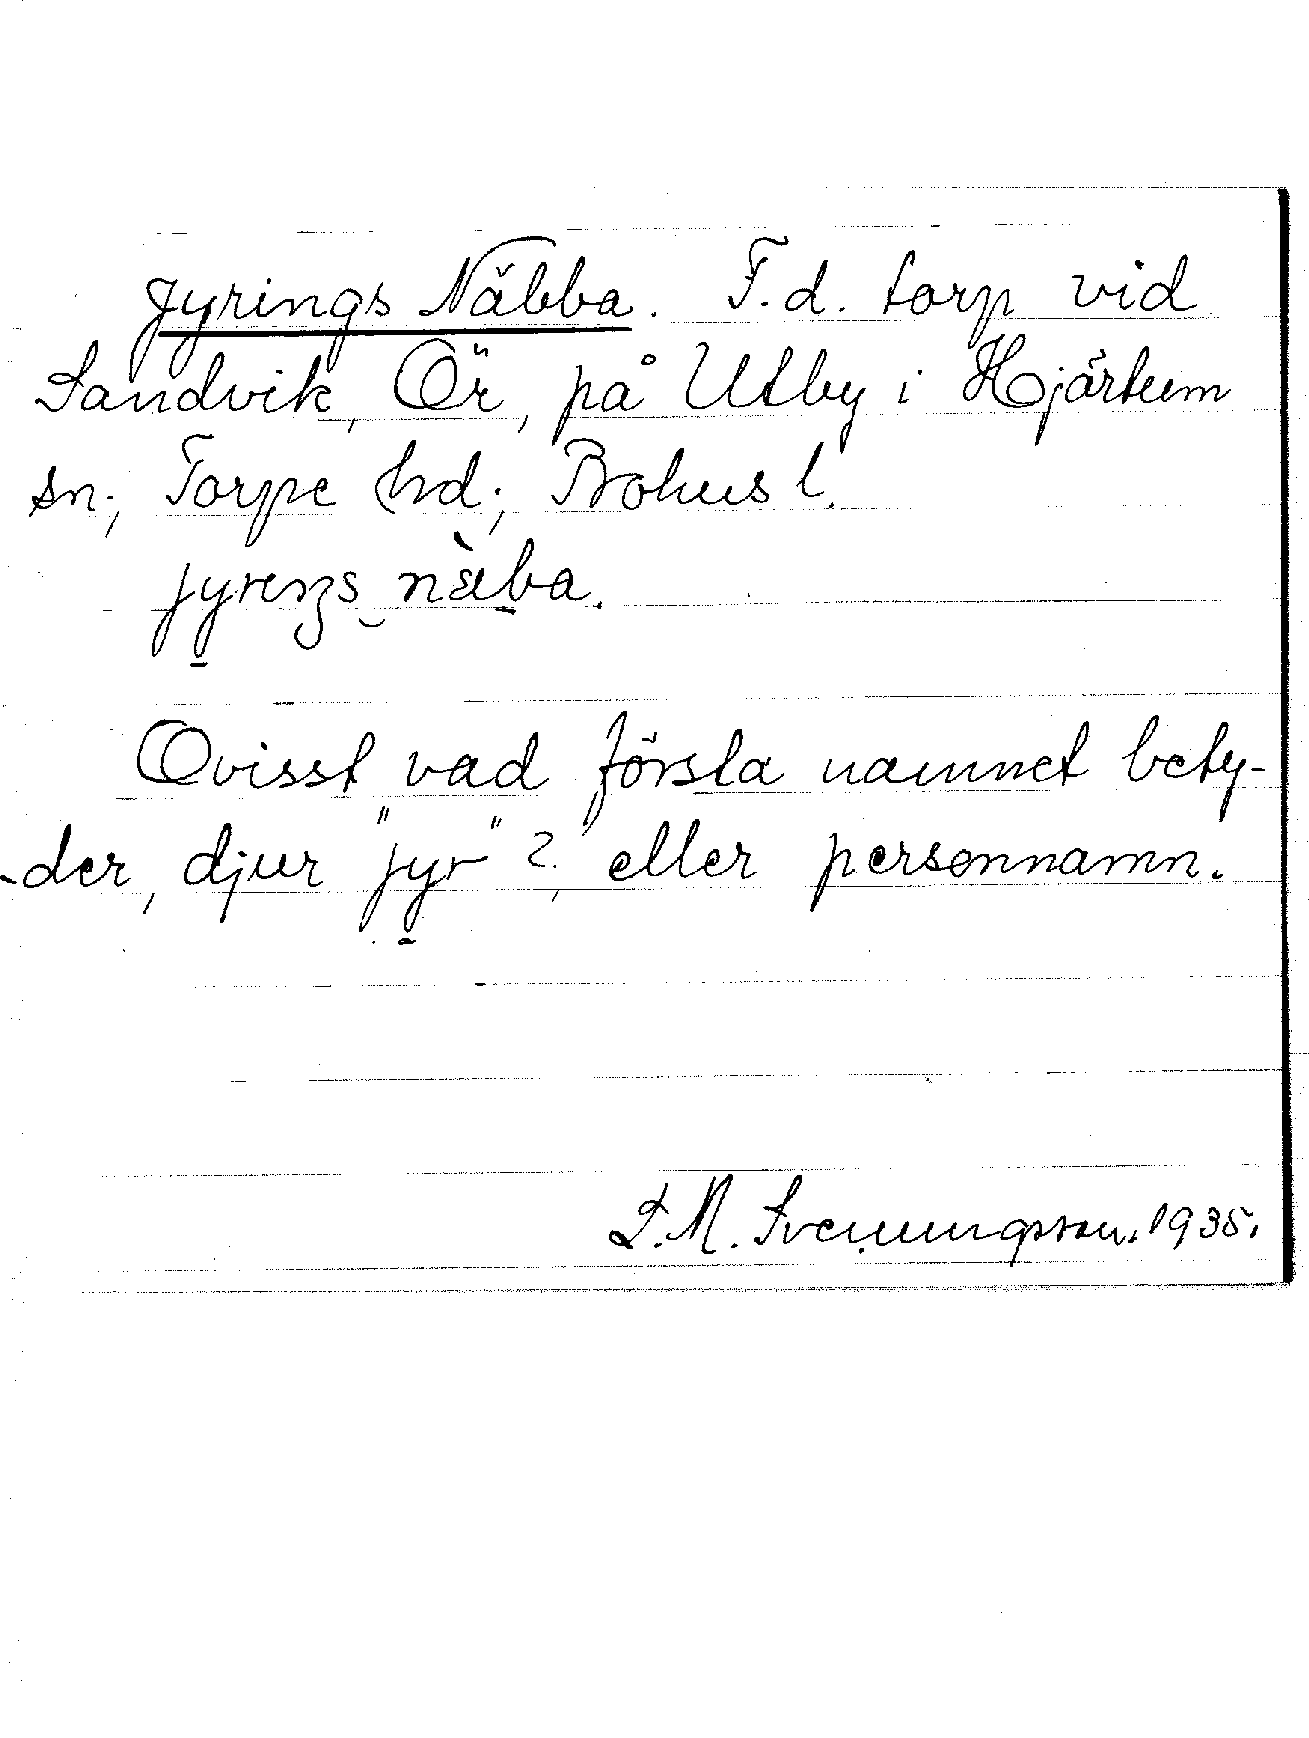 Jyrings Näbba. F.d. torp vid
Sandvik, Ör, på Utby i Hjärtum
sn; Torpe hd; Bohusl.
jyreŋs näba.
Ovisst vad första namnet bety-
-der, djur "jyr"?, eller personnamn.
L.M. Svenungsson. 1935.